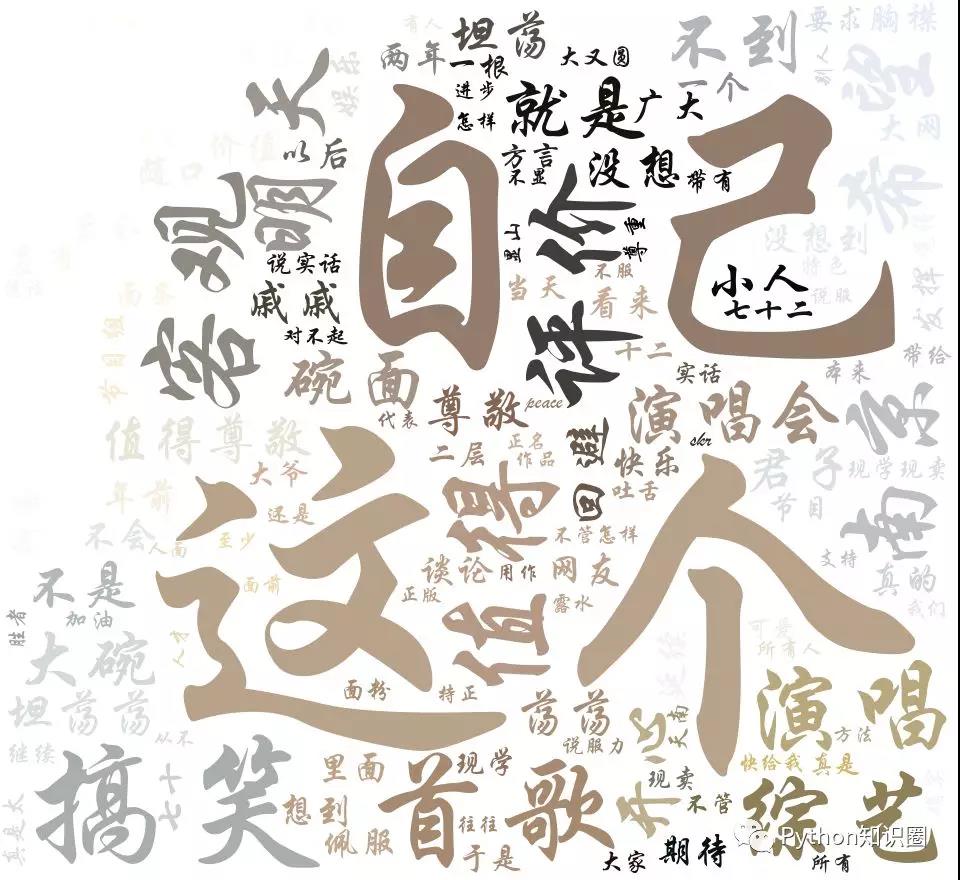 有人
坦荡
不到
要求胸襟
两年
一根
大又圆
别人
娱乐
天
进步
一个
怎样
就是
广大
大网
价值
以后
自己
方言
不显
没想
带有
随口
客观
明
评价
里山
尊重
希望
没想到
说实话
不服
特色
小人
说服
七十二
当天
看来
发挥
戚戚
对不起
面条
节目组
十二
带给
碗面
实话
本来
代表
尊敬
peace
演唱会
skr
值得尊敬
二层
正名
作品
回避
快乐
君子
现学现卖
大爷
吐舌
节目
年前
还是
这个
值得
不管怎样
不会
人面
至少
支持
真的
面前
谈论
用作
网友
不是
正版
露水
我们
加油
胜者
可是
所有人
大碗
人才
面粉
特正
演唱
坦荡荡
荡荡
天南
方法
说服力
继续
从不
搞笑
七十
里面
首歌
现学
快给我
真是
现卖
想到
不管
综艺
真是太
佩服
往往
于是
大家
期待
所有
Python知识圈